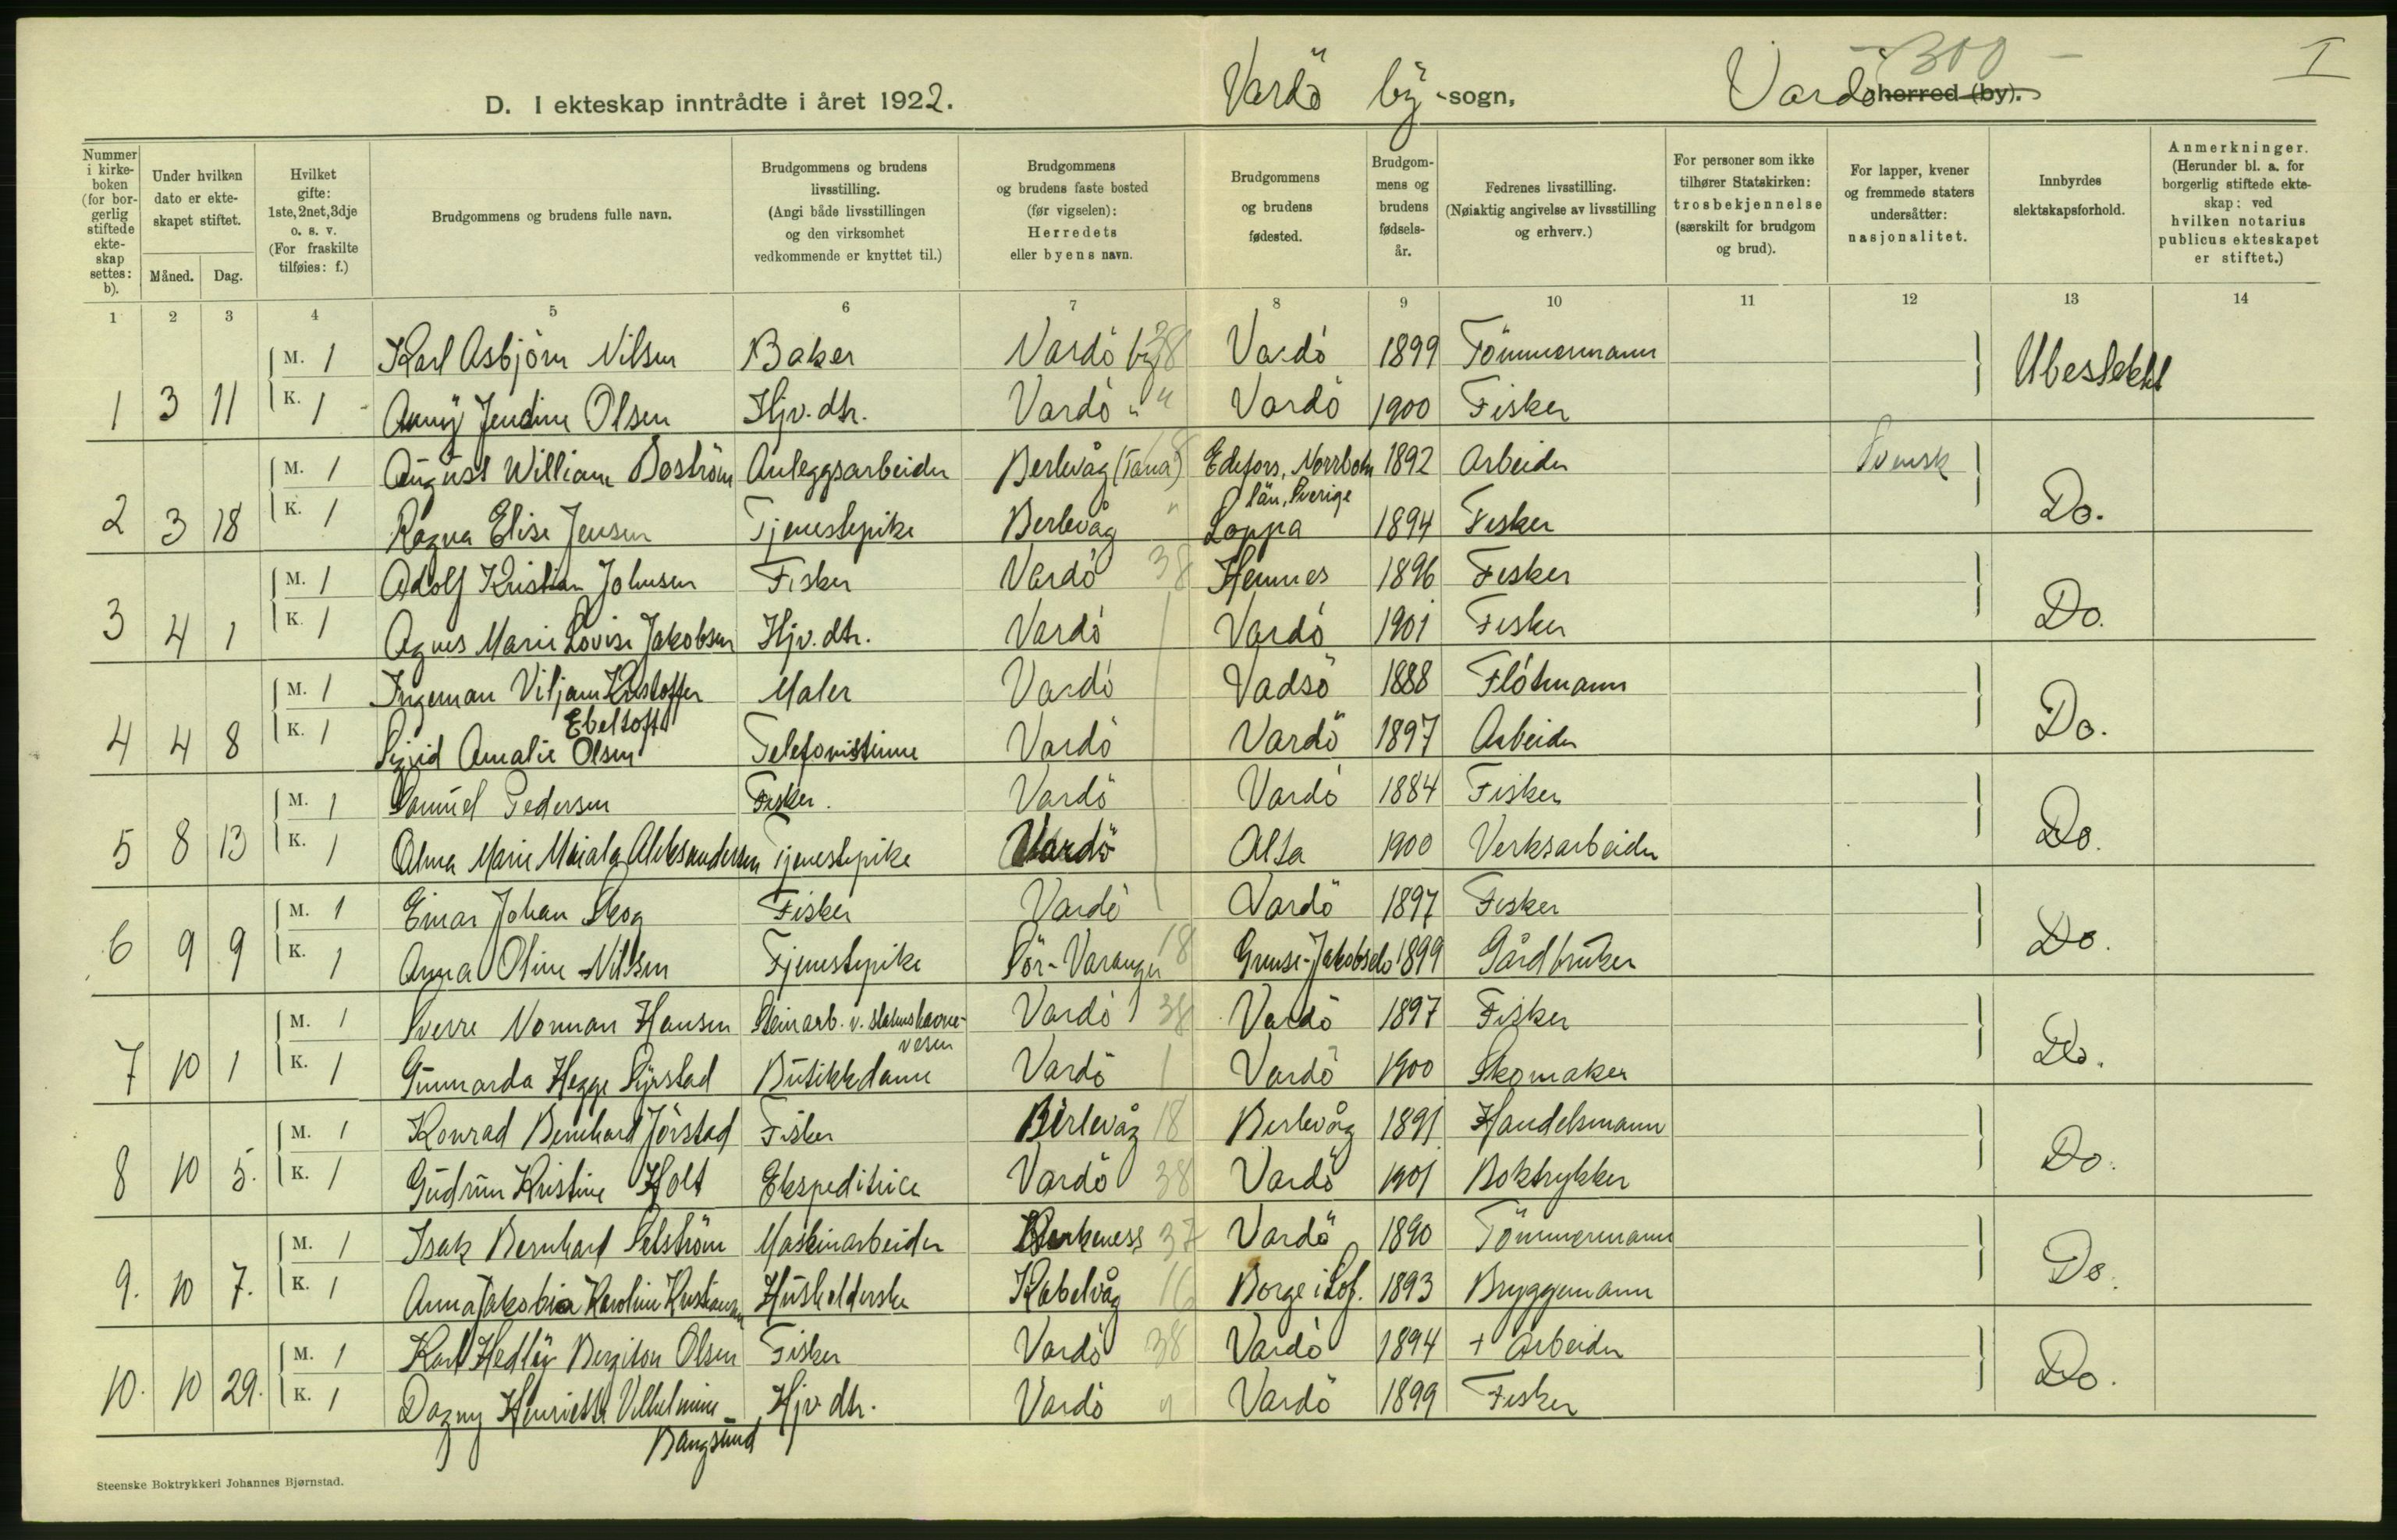 300
I
D. I ekteskap inntrådte i året 1922. Vardö by -sogn, Vardö herred (by).
Nummer i kirkeboken (for borgerlig stiftede ekteskap settes: b).
Under hvilken dato er ekteskapet stiftet.
Måned. Dag.
Hvilket gifte: 1ste, 2net, 3dje o. s. v. (For fraskilte tilføies: f.)
Brudgommens og brudens fulle navn.
Brudgommens og brudens livsstilling. (Angi både livsstillingen og den virksomhet vedkommende er knyttet til.)
Brudgommens og brudens faste bosted (før vigselen): Herredets eller byens navn.
Brudgommens og brudens fødested.
Brudgommens og brudens fødselsår.
Fedrenes livsstilling. (Nøiaktig angivelse av livsstilling og erhverv.)
For personer som ikke tilhører Statskirken: trosbekjennelse (særskilt for brudgom og brud).
For lapper, kvener og fremmede staters undersåtter: nasjonalitet.
Innbyrdes slektskapsforhold.
Anmerkninger. (Herunder bl. a. for borgerlig stiftede ekteskap: ved hvilken notarius publicus ekteskapet er stiftet.)
1 2 3 4 5 6 7 8 9 10 11 12 13 14
M. 1 Karl Asbjörn Nilsen Baker Vardö by 38 Vardö 1899 Tömmermann Ubeslektet
1 3 11 K. 1 Anny Jendine Olsen Hjv. dtr. Vardö " " Vardö 1900 Fisker
M. 1 August William Boström Anleggsarbeider Berlevåg (Tana) 18 Edefors, Norrboten län, Sverige 1892 Arbeider Svensk
2 3 18 K. 1 Ragna Elise Jensen Tjenestepike Berlevåg " Loppa 1894 Fisker Do.
M. 1 Adolf Kristian Johnsen Fisker Vardö 38 Hemnes 1896 Fisker
3 4 1 K. 1 Agnes Marie Lovise Jakobsen Hjv. dtr. Vardö Vardö 1901 Fisker Do.
M. 1 Ingeman Viljam Kristoffer Ebeltoft Maler Vardö Vadsö 1888 Flötmann
4 4 8 K. 1 Sigrid Amalie Olsen Telefonistinne Vardö Vardö 1897 Arbeider Do.
M. 1 Samuel Pedersen Fisker. Vardö Vardö 1884 Fisker
5 8 13 K. 1 Alma Marie Maiala Aleksandersen Tjenestepike Vardö Alta 1900 Verksarbeider Do.
M. 1 Einar Johan Skog Fisker Vardö Vardö 1897 Fisker
6 9 9 K. 1 Anna Oline Nilsen Tjenestepike Sör-Varanger 18 Grense-Jakobselv 1899 Gårdbruker Do.
M. 1 Sverre Norman Hansen Steinarb. v. statens havnevesen Vardö 38 Vardö 1897 Fisker
7 10 1 K. 1 Gunnarda Hegge Syrstad Butikkdame Vardö Vardö 1900 Skomaker Do.
M. 1 Konrad Bernhard Jörstad Fisker Berlevåg 18 Berlevåg 1891 Handelsmann
8 10 5. K. 1 Gudrun Kristine Holt Ekspeditrice Vardö 38 Vardö 1901 Boktrykker Do.
M. 1 Isak Bernhard Selström Maskinarbeider Kirkeness 37 Vardö 1890 Tömmermann
9. 10 7. K. 1 Anna Jakobia Karoline Kristiansen Husholderske Kabelvåg 16 Borge i Lof. 1893 Bryggemann Do.
M. 1 Karl Hedley Bergiton Olsen Fisker Vardö 38 Vardö 1894 + Arbeider
10. 10 29. K. 1 Dagny Henriette Vilhelmine Bangsund Hjv. dtr. Vardö " Vardö 1899 Fisker Do.
Steenske Boktrykkeri Johannes Bjørnstad.